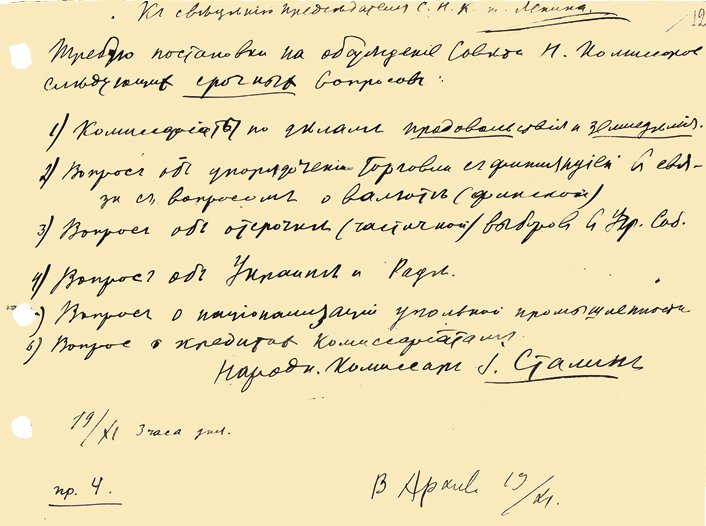 Къ свѣдѣнію предсѣдателя С. Н. К. т. Ленина.
12
Требую постановки на обсужденіе Совѣта Н. Комиссаров
слѣдующихъ срочныхъ вопросовъ:
1) Комиссаріатъ по дѣламъ продовольствія и земледѣлія.
2) Вопросъ объ упорядоченіи торговли съ Финляндіей в свя-
зи съ вопросомъ о валютѣ (финской)
3) Вопросъ объ отсрочкѣ (частичной) выборов в Учр. Соб.
4) Вопросъ объ Украинѣ и Радѣ.
5) Вопросъ о націонализаціи угольной промышленности
6) Вопрос о кредитах комиссаріатамъ
Народн. Комиссаръ І. Сталинъ
19/XI 3 часа дня.
пр. 4.
В Архив 19/XI.